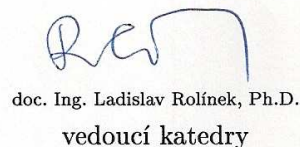 doc. Ing. Ladislav Rolínek, Ph.D.
vedoucí katedry